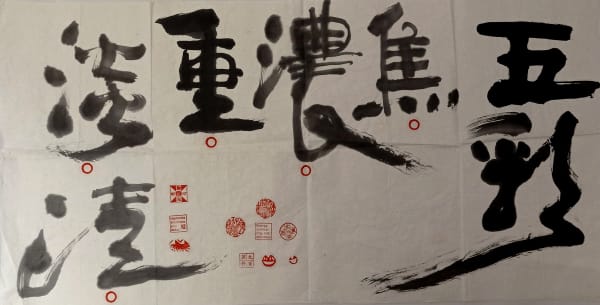 五彩
焦
濃
重
淡
清